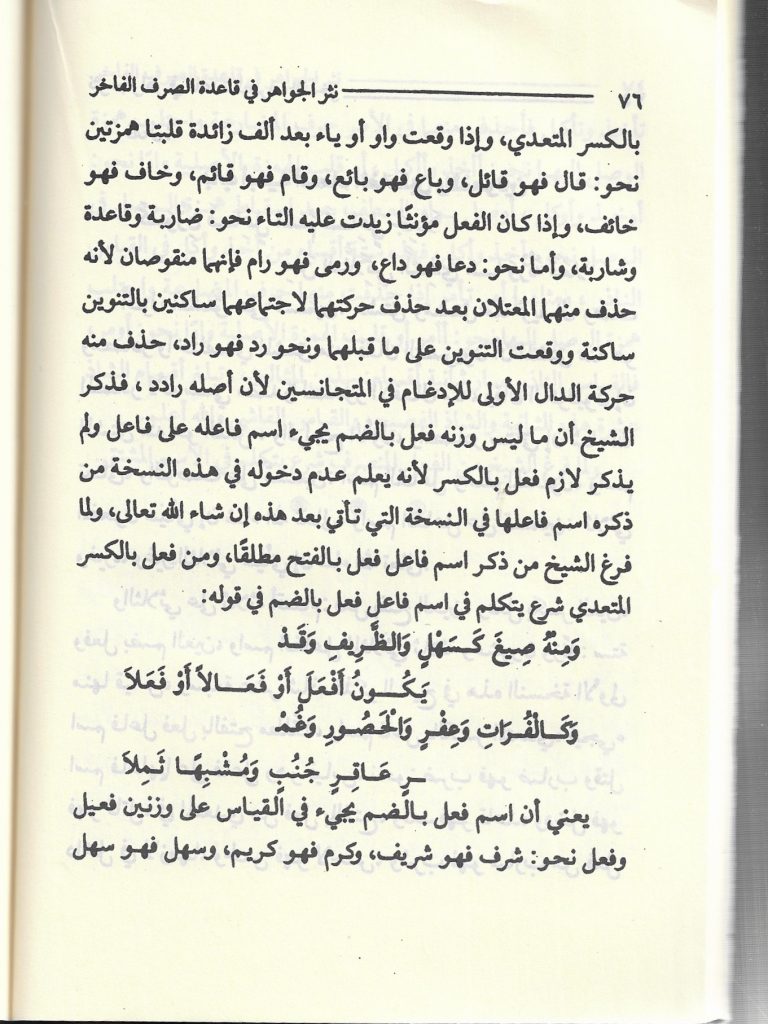 ٧٦ نثر الجواهر في قاعدة الصرف الفاخر
بالكسر المتعدي، وإذا وقعت واو أو ياء بعد ألف زائدة قلبتا همزتين
نحو: قال فهو قائل، وباع فهو بائع، وقام فهو قائم، وخاف فهو
خائف، وإذا كان الفعل مؤنثًا زيدت عليه التاء نحو: ضاربة وقاعدة
وشاربة، وأما نحو: دعا فهو داع، ورمى فهو رام فإنهما منقوصان لأنه
حذف منهما المعتلان بعد حذف حركتهما لاجتماعهما ساكنين بالتنوين
ساكنة ووقعت التنوين على ما قبلهما ونحو رد فهو راد، حذف منه
حركة الدال الأولى للإدغام في المتجانسين لأن أصله رادد ، فذكر
الشيخ أن ما ليس وزنه فعل بالضم يجيء اسم فاعله على فاعل ولم
يذكر لازم فعل بالكسر لأنه يعلم عدم دخوله في هذه النسخة من
ذكره اسم فاعلها في النسخة التي تأتي بعد هذه إن شاء الله تعالى، ولما
فرغ الشيخ من ذكر اسم فاعل فعل بالفتح مطلقًا، ومن فعل بالكسر
المتعدي شرع يتكلم في اسم فاعل فعل بالضم في قوله:
وَمِنْهُ صِيغَ كَسَهْلٍ وَالظَّرِيفِ وَقَدْ
يَكُونُ أَفْعَلَ أَوْ فَعَالاً أَوْ فَعَلاَ
وَكَالْفُرَاتِ وَعِفْرٍ وَالْحَصُورِ وَغُمْ
رٍ عَاقِرٍ جُنُبٍ وَمُشْبِهًا ثَمِلاَ
يعني أن اسم فعل بالضم يجيء في القياس على وزنين فعيل
وفعل نحو: شرف فهو شريف، وكرم فهو كريم، وسهل فهو سهل